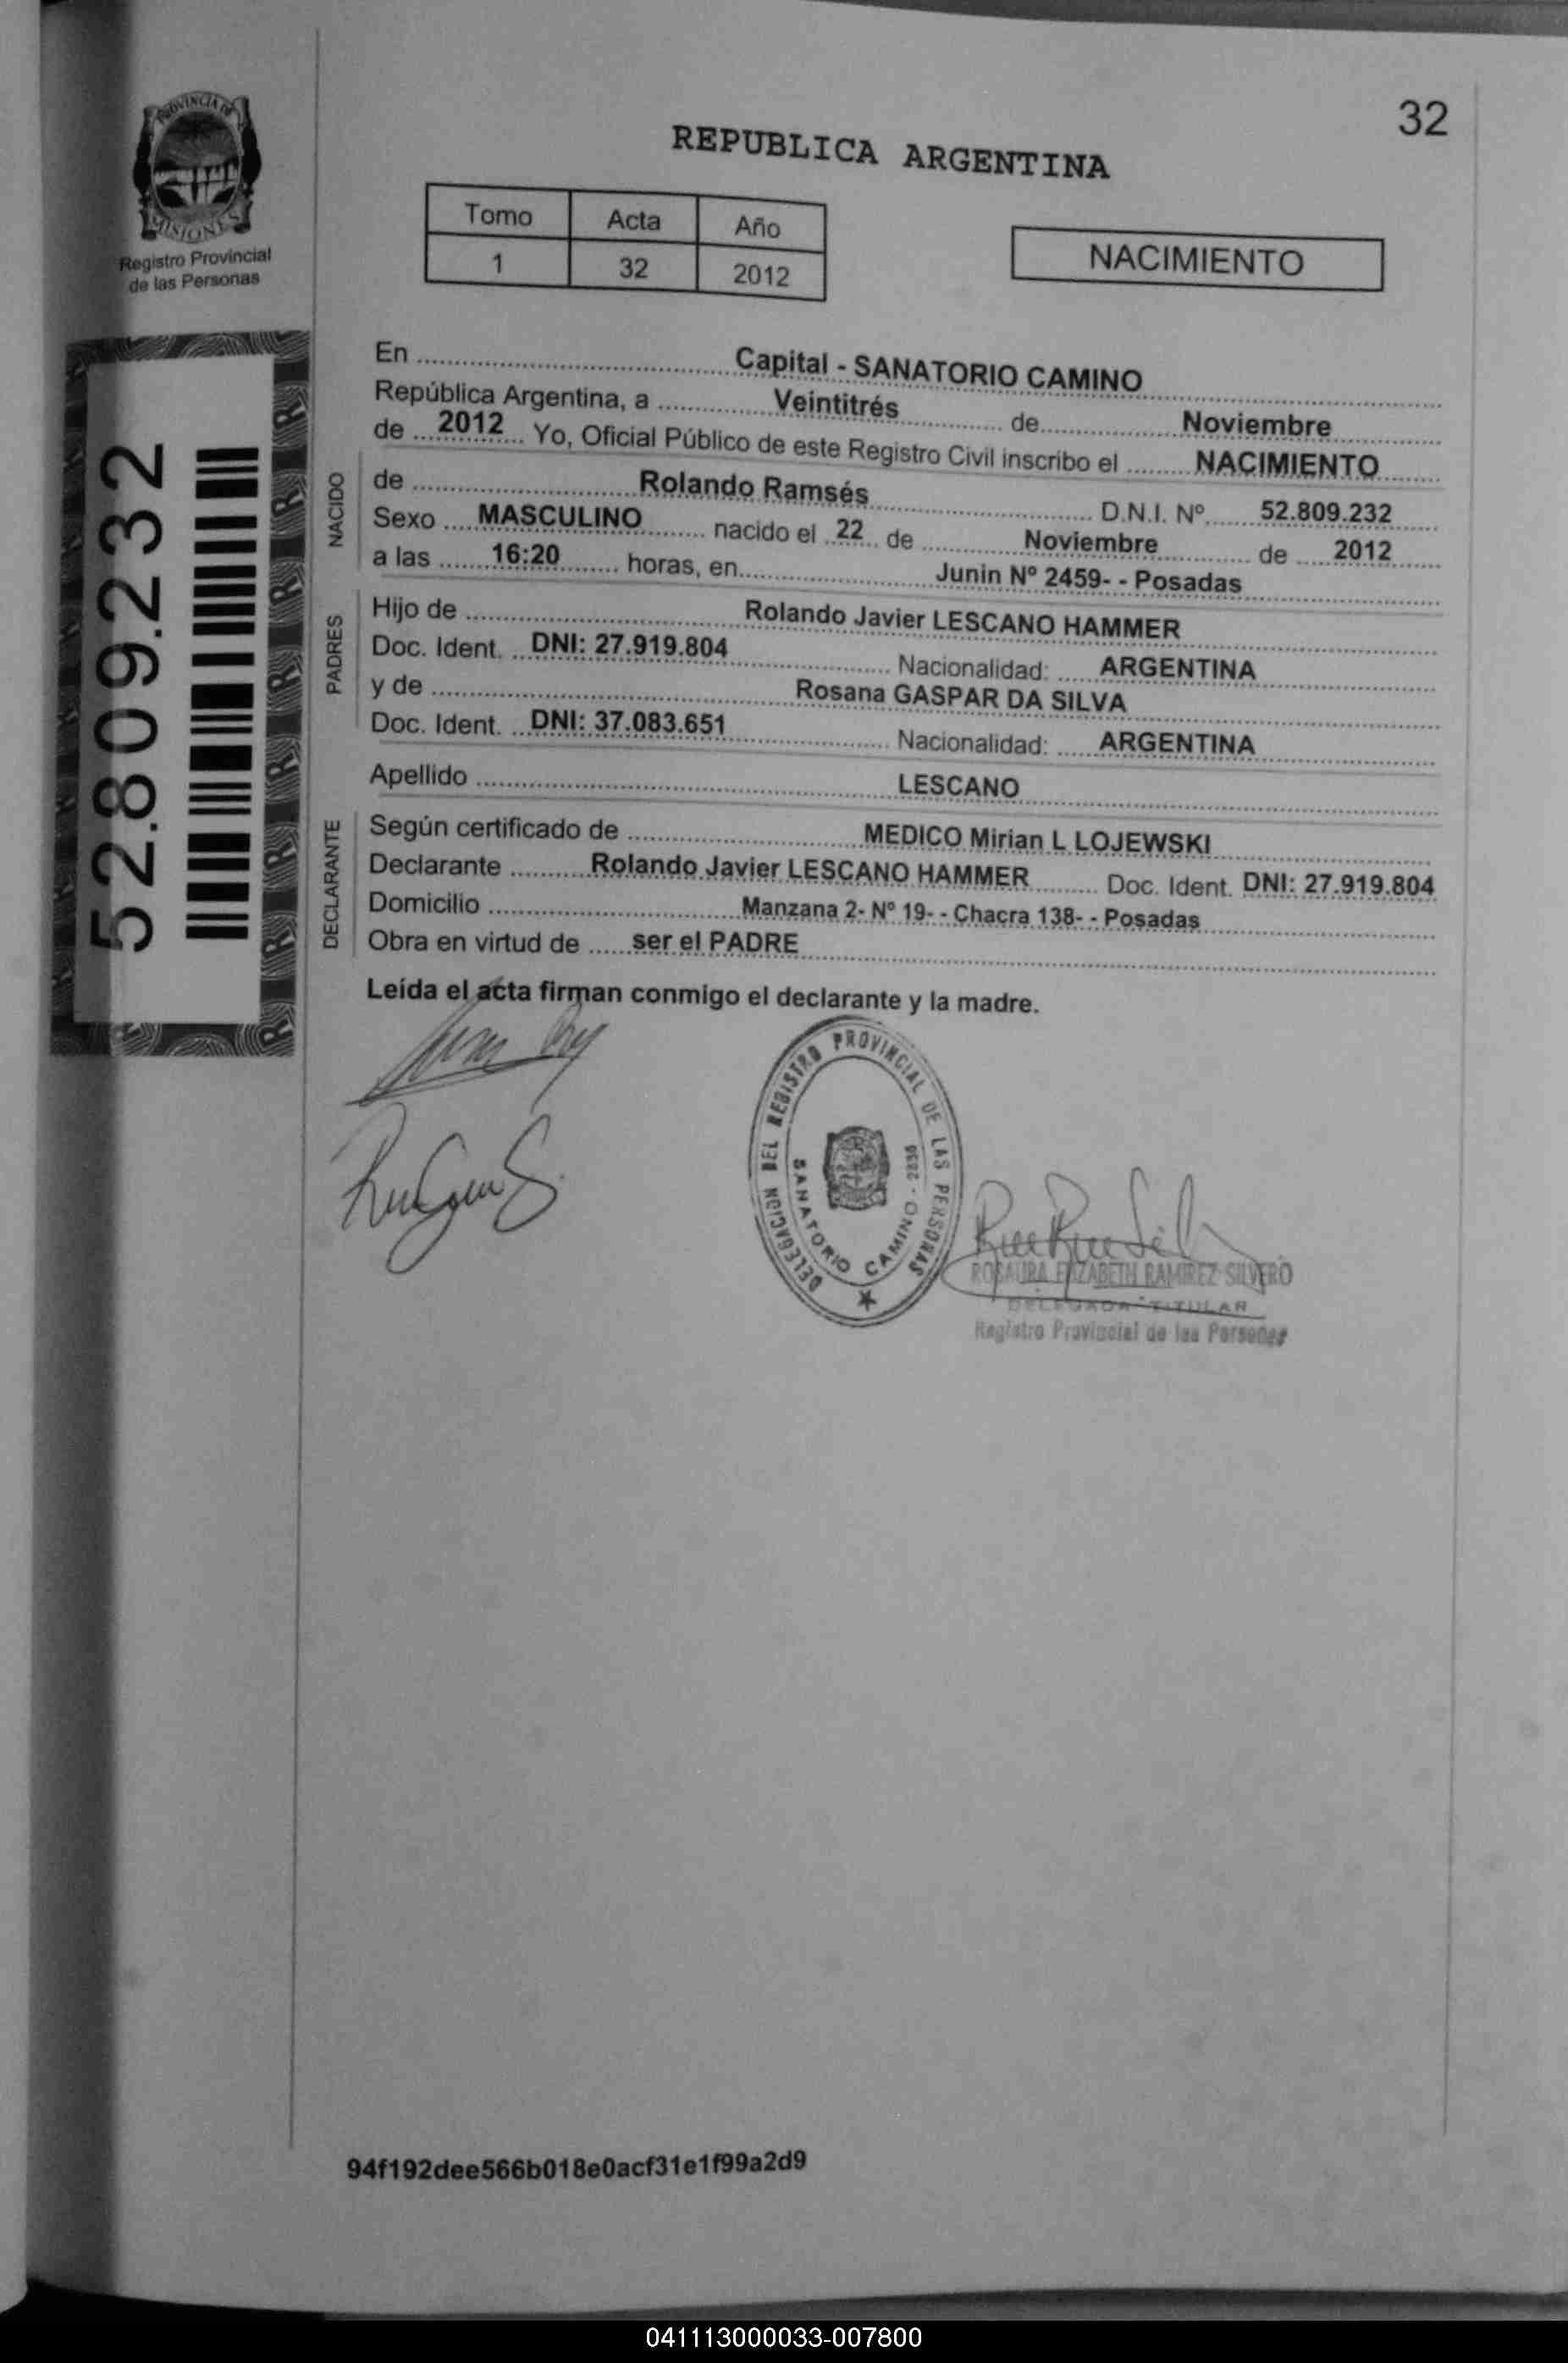 32
PROVINCIA DE
MISIONES
Registro Provincial
de las Personas
REPUBLICA ARGENTINA
Tomo Acta Año
1 32 2012
NACIMIENTO
52.809.232
En Capital - SANATORIO CAMINO
República Argentina, a Veintitrés de Noviembre
de 2012 Yo, Oficial Público de este Registro Civil inscribo el NACIMIENTO
NACIDO
de Rolando Ramsés D.N.I. Nº 52.809.232
Sexo MASCULINO nacido el 22 de Noviembre de 2012
a las 16:20 horas, en Junin Nº 2459- - Posadas
PADRES
Hijo de Rolando Javier LESCANO HAMMER
Doc. Ident. DNI: 27.919.804 Nacionalidad: ARGENTINA
y de Rosana GASPAR DA SILVA
Doc. Ident. DNI: 37.083.651 Nacionalidad: ARGENTINA
Apellido LESCANO
DECLARANTE
Según certificado de MEDICO Mirian L LOJEWSKI
Declarante Rolando Javier LESCANO HAMMER Doc. Ident. DNI: 27.919.804
Domicilio Manzana 2- Nº 19- - Chacra 138- - Posadas
Obra en virtud de ser el PADRE
Leída el acta firman conmigo el declarante y la madre.
DELEGACION DEL REGISTRO PROVINCIAL DE LAS PERSONAS
SANATORIO CAMINO - 2836
ROSAURA ELIZABETH RAMIREZ SILVERO
DELEGADA TITULAR
Registro Provincial de las Personas
94f192dee566b018e0acf31e1f99a2d9
041113000033-007800